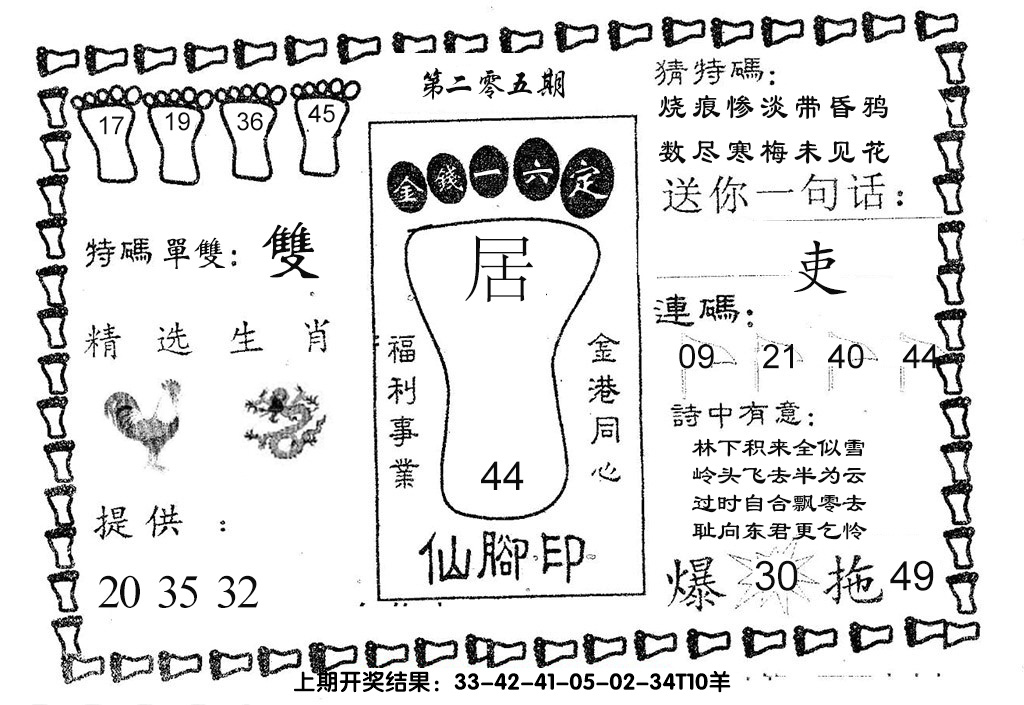 第二零五期
17 19 36 45
特碼單雙：雙
精选生肖
提供：
20 35 32
金錢一六定
居
福利事業
金港同心
44
仙腳印
猜特碼：
烧痕惨淡带昏鸦
数尽寒梅未见花
送你一句话：
吏
連碼：
09 21 40 44
詩中有意：
林下积来全似雪
岭头飞去半为云
过时自合飘零去
耻向东君更乞怜
爆 30 拖 49
上期开奖结果：33-42-41-05-02-34T10羊